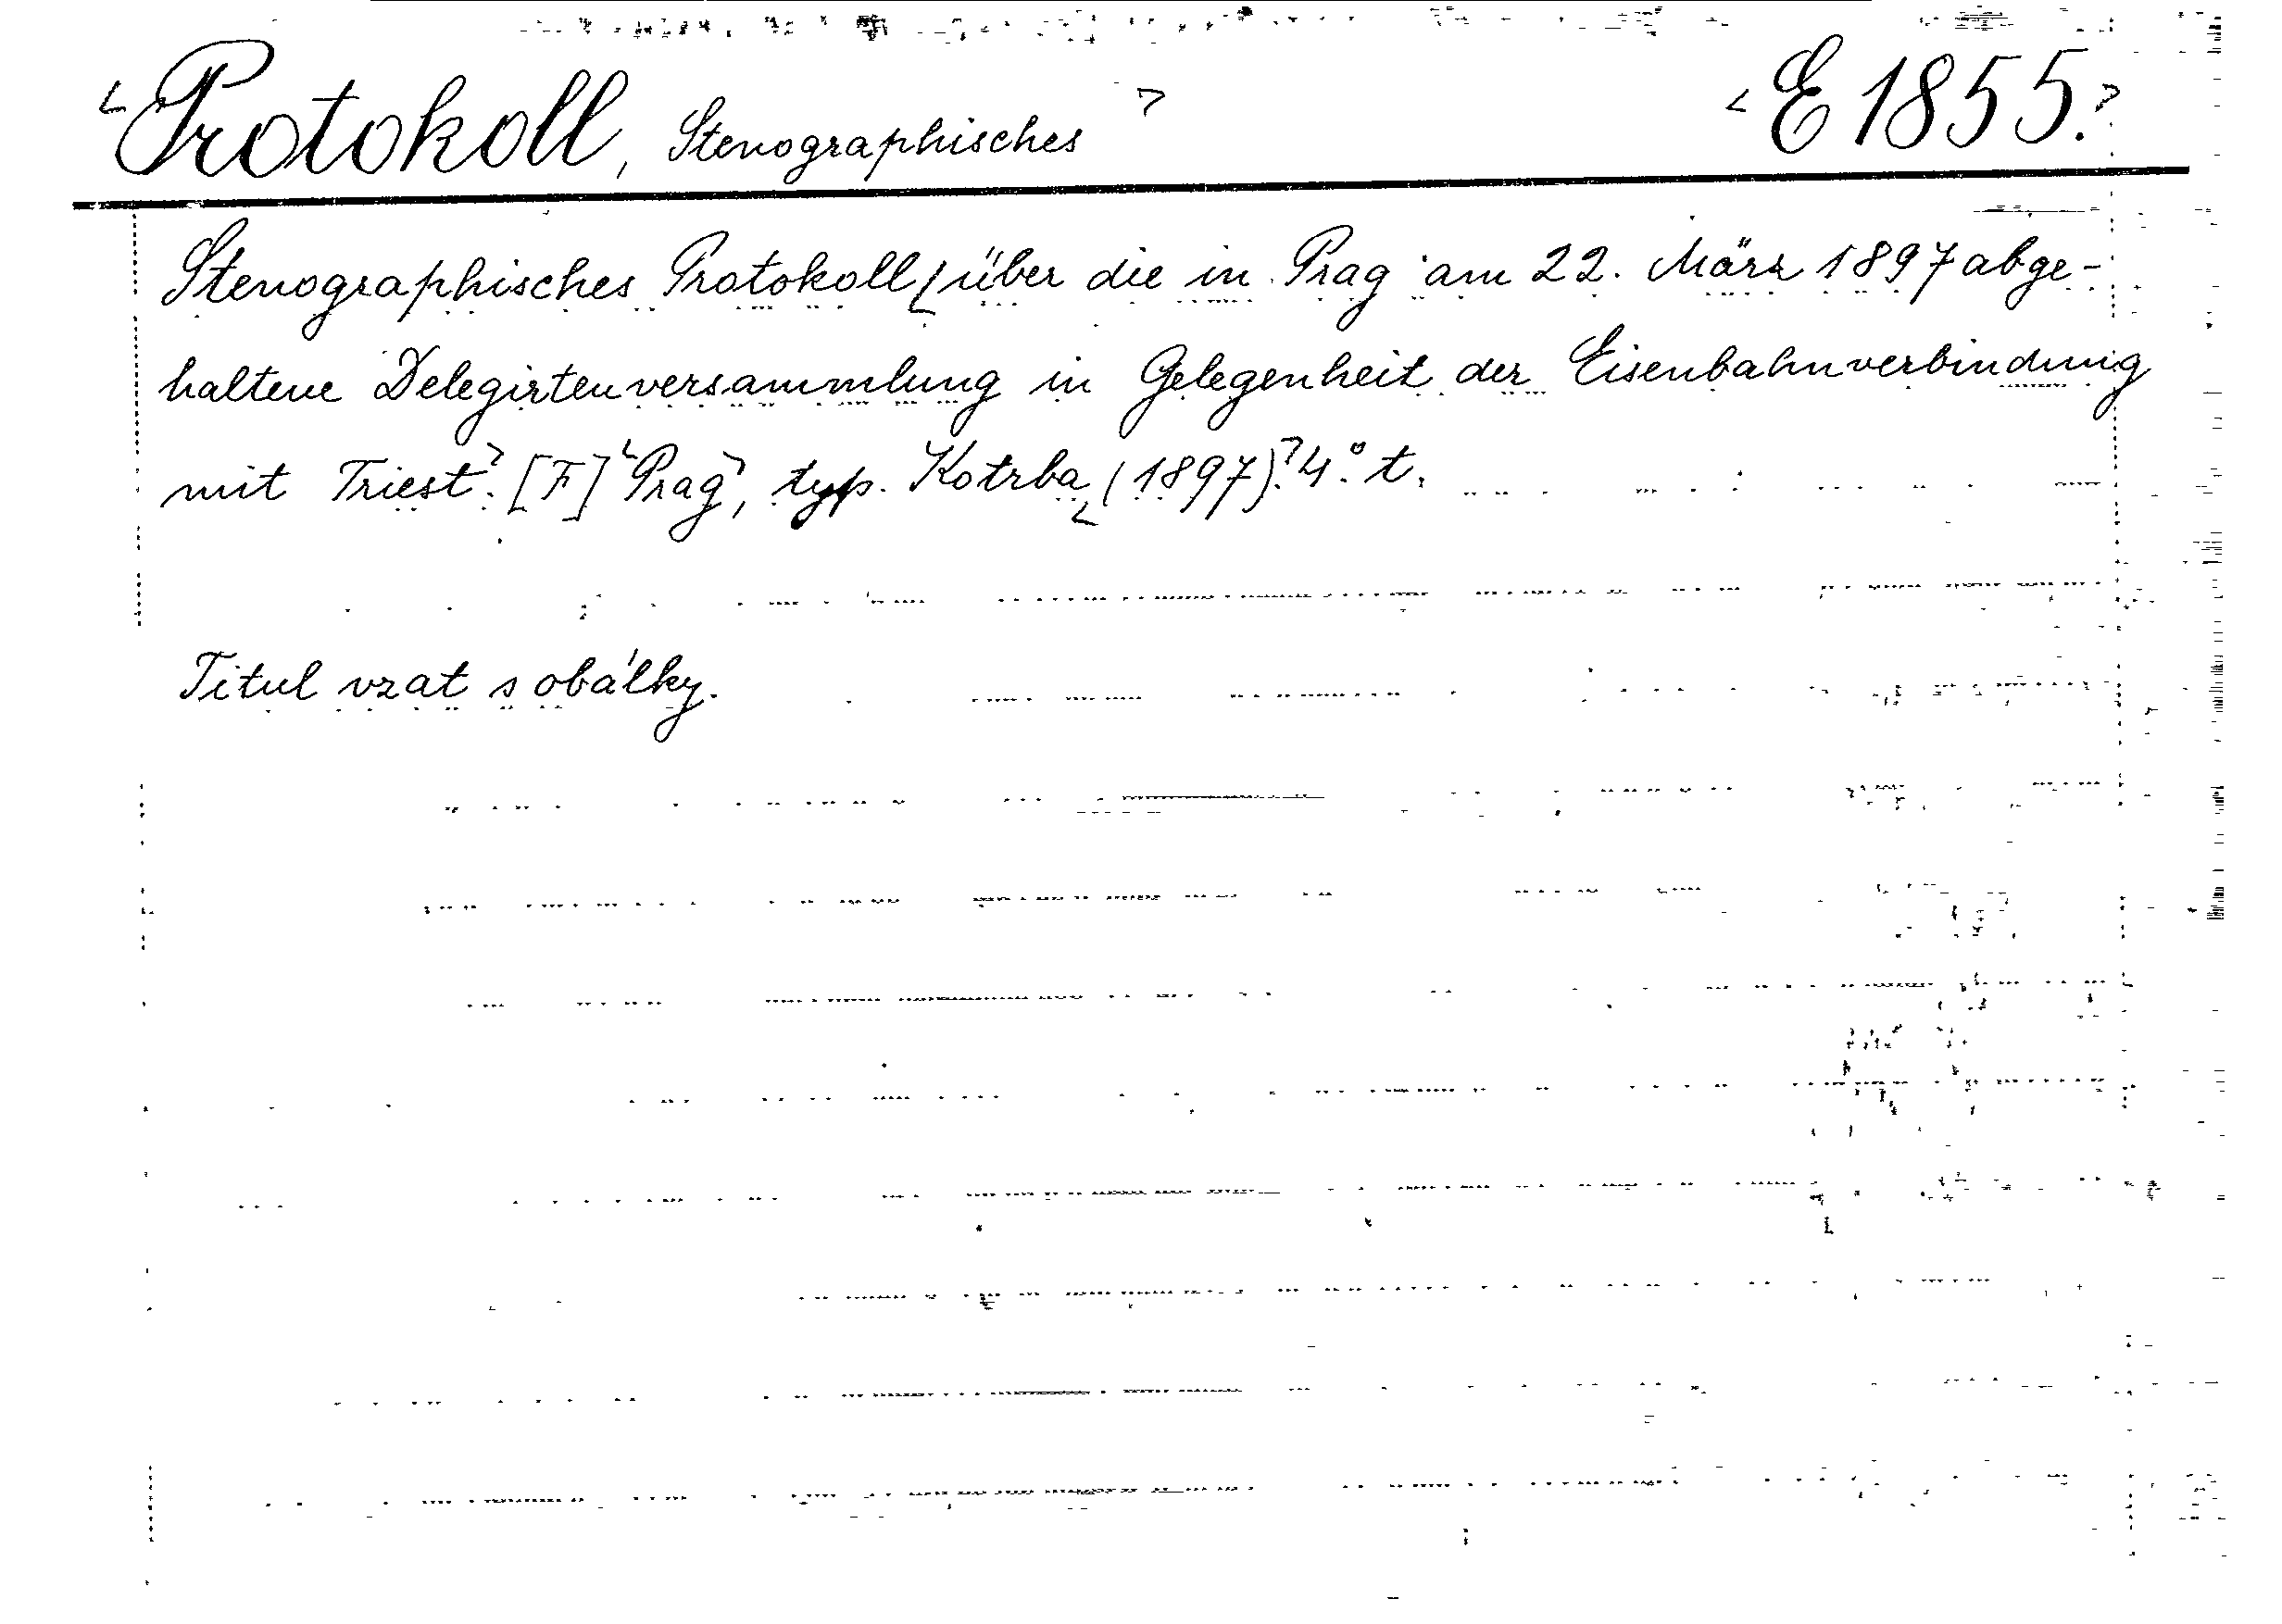 Protokoll, Stenographisches E 1855.
Stenographisches Protokoll über die in Prag am 22. März 1897 abge-
haltene Delegirtenversammlung in Gelegenheit der Eisenbahnverbindung
mit Triest. [F] Prag, typ. Kotrba (1897). 4° t.
Titul vzat s obálky.